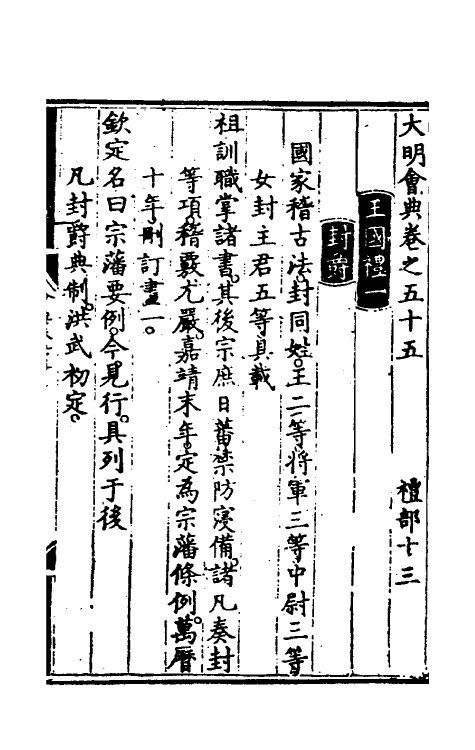 大明會典卷之五十五 禮部十三
王國禮一
封爵
國家稽古法。封同姓。王二等。將軍三等。中尉三等
女封主君五等。具載
祖訓職掌諸書。其後宗庶日蕃。禁防寖備。諸凡奏封
等項。稽覈尤嚴。嘉靖末年。定為宗藩條例。萬曆
十年。刪訂畫一。
欽定名曰宗藩要例。今見行。具列于後
凡封爵典制。洪武初定。